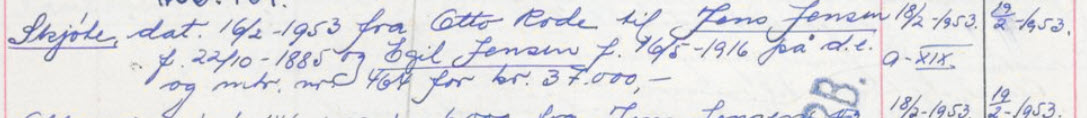 Skjøte, dat. 16/2-1953 fra Otto Rode til Jens Jensen 18/2-1953. 19/2-1953.
f. 22/10-1885 og Egil Jensen f. 16/5-1916 på d.e. a-XIX.
og mtr. nr. 464 for kr. 37.000,-
18/2-1953. 19/2-1953.